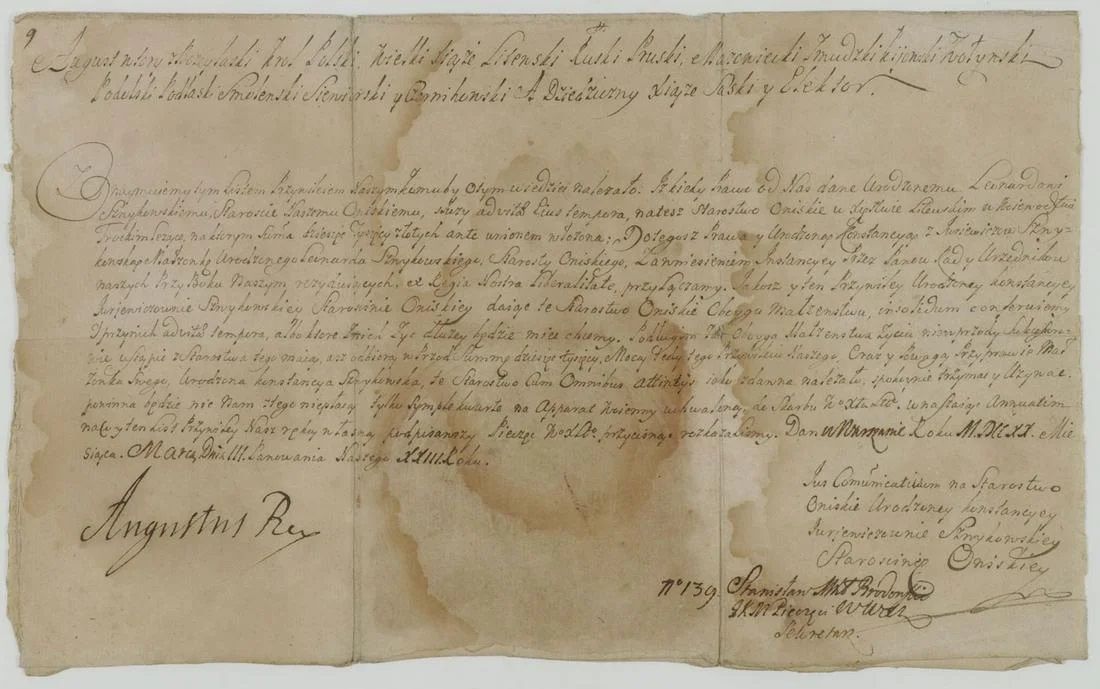 9
August wtory z Bożey łaski Krol Polski, Wielki Xiąże Litewski Ruski Pruski, Mazowiecki Zmudzki Kijowski Wołynski
Podolski Podlaski Smolenski Siewierski y Czernihowski A Dziedziczny Xiąże Saski y Elektor.
Oznaymuiemy tym Listem Przywilejem Naszym komu by o tym wiedzieć należało. Iż kiedy Prawo od Nas dane Urodzonemu Leonardowi
Sznykowskiemu, Staroscie Naszemu Oniskiemu, służy ad vitæ Eius tempora, na też Starostwo Oniskie w Xięstwie Litewskim w Woiewodztwie
Trockim leżące, na ktorym Suma dziesięć tysięcy złotych ante unionem wniesiona; Do tegoż Prawa y Urodzoną Konstancyą z Jurjewiczow Szny-
kowską Małżonkę Urodzonego Leonarda Sznykowskiego, Starosty Oniskiego, Za wniesieniem Instancyey Przez Panow Rad y Urzędnikow
naszych Przy Boku Naszym rezyduiących, ex Regia Nostra Liberalitate, przyłączamy. Jakoż y ten Przywiley Urodzoney Konstancyey
Jurjewiczownie Sznykowskiey Starościnie Oniskiey daiąc te Starostwo Oniskie Oboygu Małżenstwu, in solidum conferuiemy
y przy nich ad vitæ tempora, albo ktore z nich żyć dłużey będzie mieć chcemy. Po długim zaś Oboyga Małżenstwa życiu nie wprzody Sukcessoro-
nie ustąpić z Starostwa tego maią, aż odbiorą w przod Summę dziesięć tysięcy, Mocą tedy tego Przywileiu Naszego, Oraz y Powagą Przy prawie Mał-
żonka Swego, Urodzona Konstancya Sznykowska, te Starostwo Cum Omnibus attinentiis iako z dawna należało, spokoynie trzymać y Używać
powinna będzie nic Nam z tego niepłacąc tylko Symplę kwartę na Apparat Woienny uchwaloną do Skarbu W° Xtwa Litt°. wnaszaiąc Annuatim
na co y ten List Przywiley Nasz ręką własną podpisawszy Pieczęć W° X Lit°. przycisnąć rozkazalismy. Dan w Warszawie Roku M.DCC.XX. Mie-
siąca. Marca, Dnia III. Panowania Naszego XXIII Roku.
Augustus Rex
Ius Comunicativum na Starostwo
Oniskie Urodzoney Konstancyey
Jurjewiczownie Sznykowskiey
Starościnie Oniskiey
N° 139 Stanisław
J K M Pieczęci W W X L
Sekretarz.